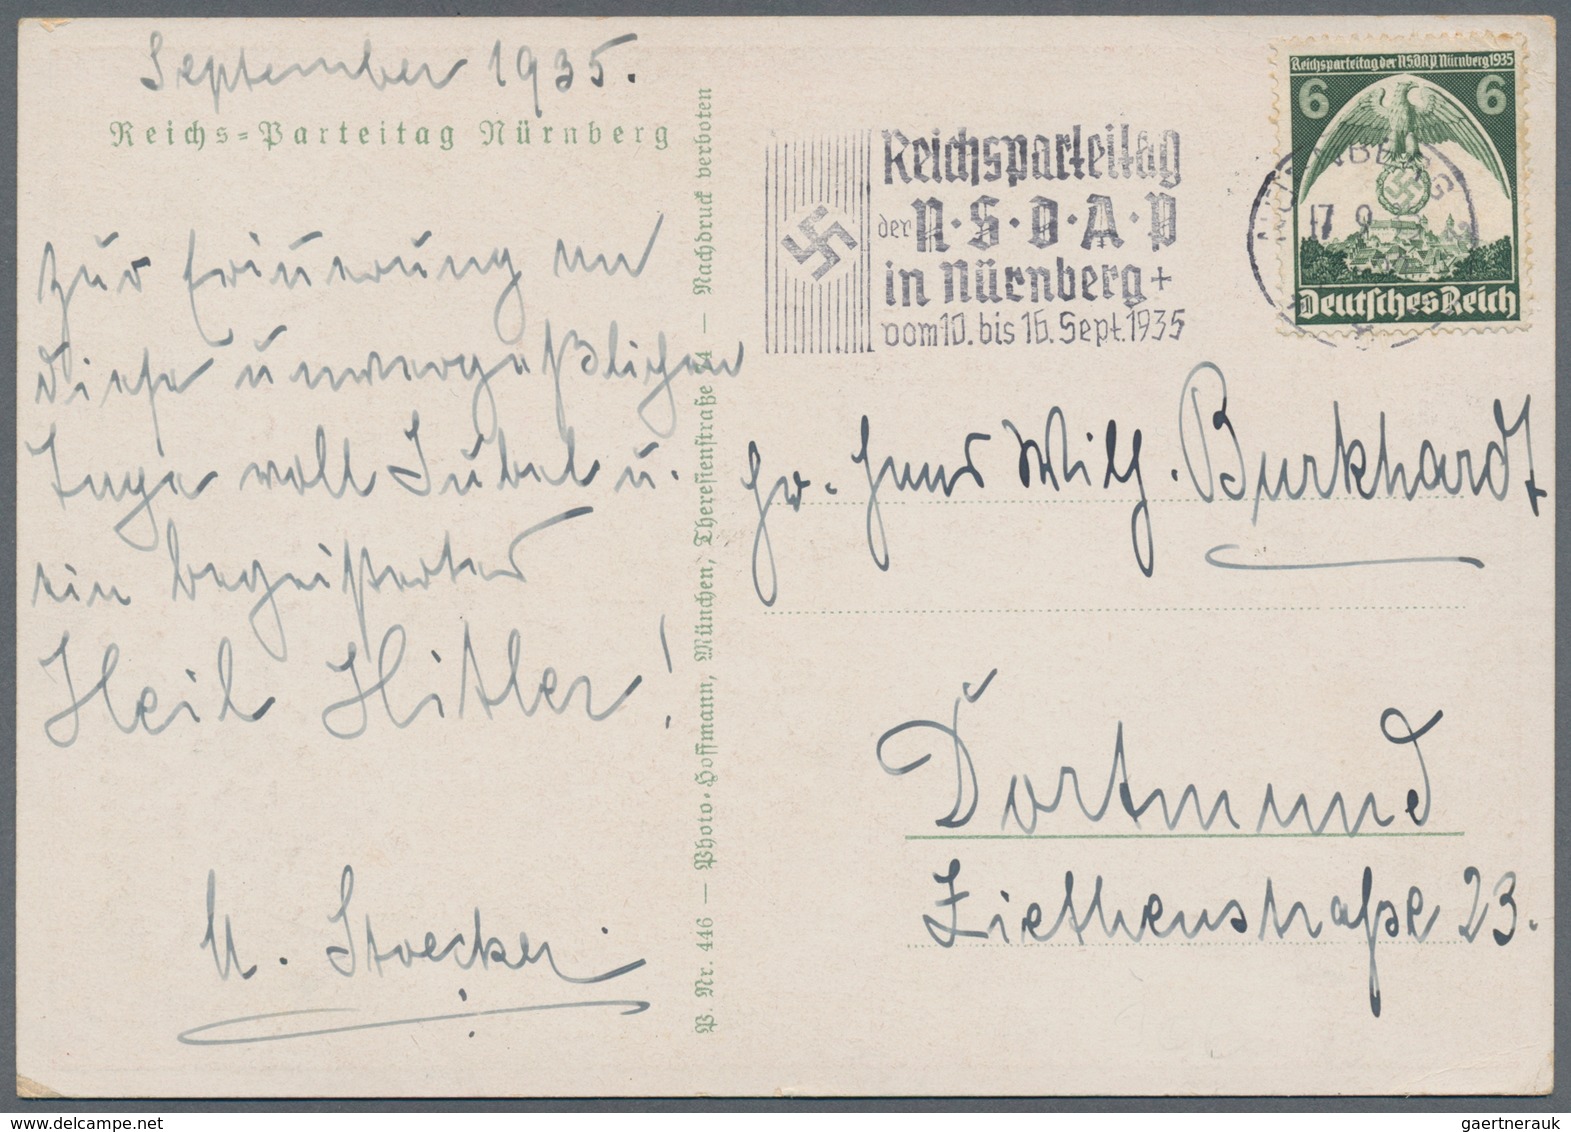 September 1935.
Reichs=Parteitag Nürnberg
Zur Erinnerung an
diese unvergeßlichen
Tage voll Jubel u.
ein begeistertes
Heil Hitler!
Stoecker
P. Nr. 446 — Photo-Hoffmann, München, Theresienstraße 74 — Nachdruck verboten
Reichsparteitag
der N·S·D·A·P
in Nürnberg +
vom 10. bis 16. Sept. 1935
Reichsparteitag der NSDAP Nürnberg 1935
6 6
Deutsches Reich
NÜRNBERG
17 9
Hr. Hans Wilh. Burkhardt
Dortmund
Ziethenstraße 23.
gaertnerauk @ delcampe.net